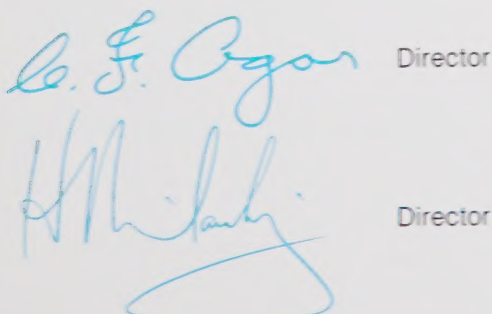 C. F. Agar Director
Director